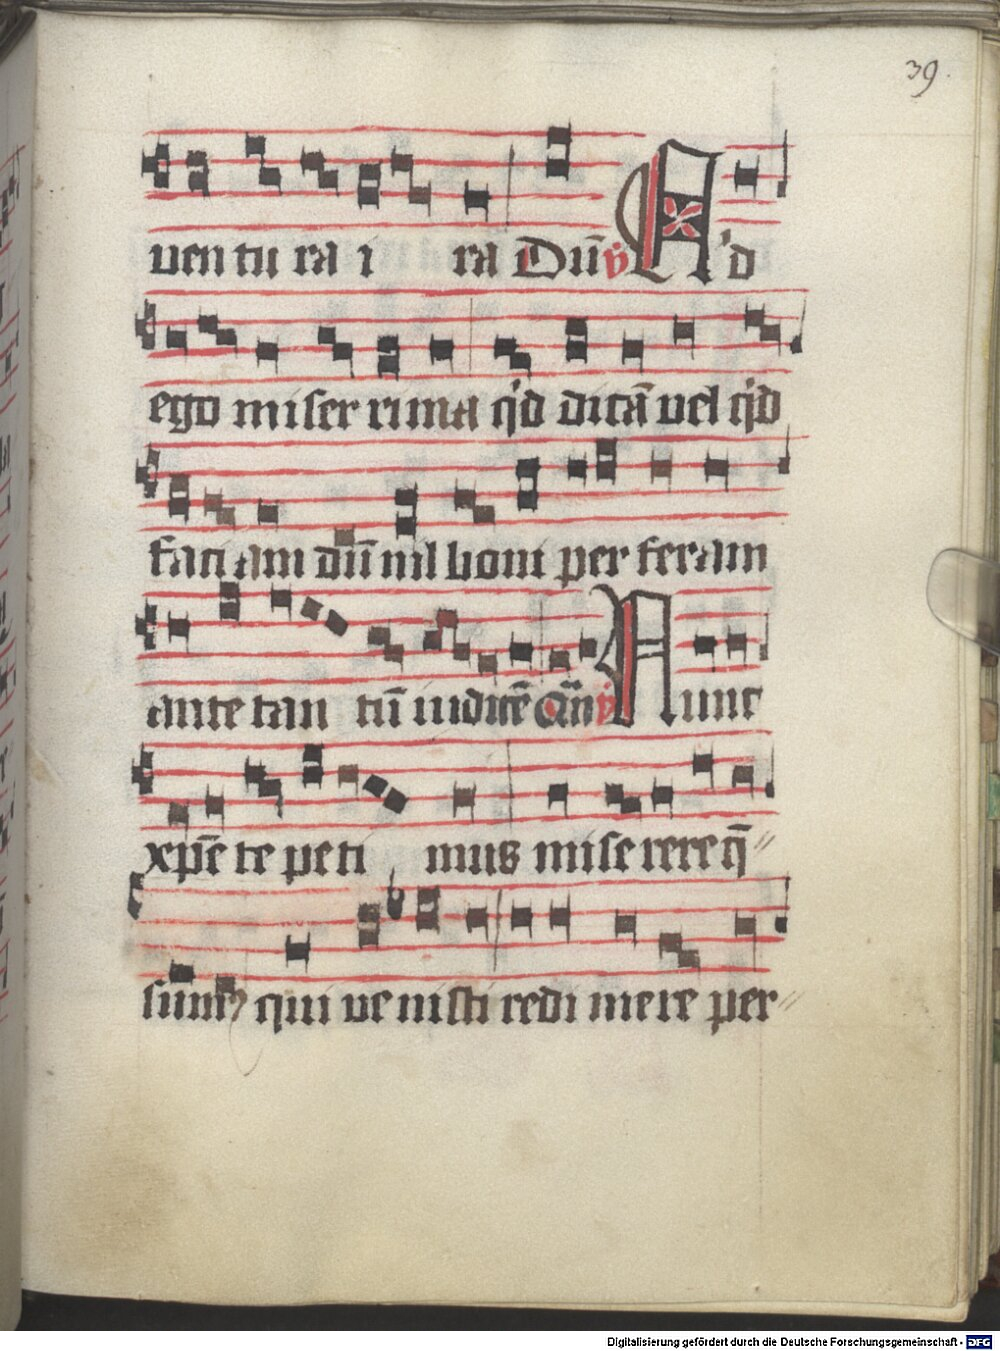 39.
uen tu ra i ra Dū ℣ Q'd
ego miser rima q'd dicā uel q'd
faci am dū nil boni per feram
ante tan tū iudicē Qn̄ ℣ Nunc
xp̄e te peti mus mise rere q̄
sum9 qui ue nisti redi mere per
Digitalisierung gefördert durch die Deutsche Forschungsgemeinschaft - DFG